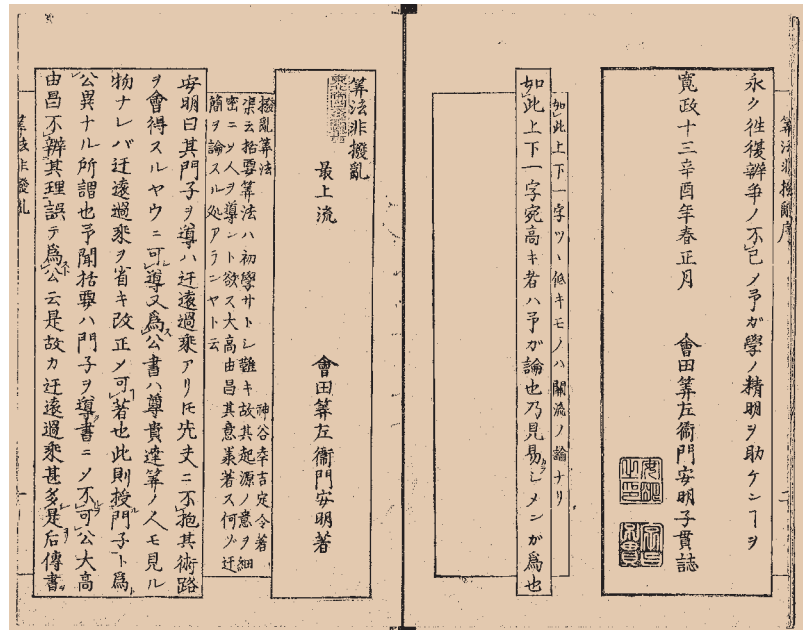 永ク往復辨争ノ不已メ予ガ學ノ精明ヲ助ケンヿヲ
寛政十三辛酉年春正月　會田筭左衞門安明子貫誌
如此上下一字ツヽ低キモノハ關流ノ論ナリ
如此上下一字宛高キ者ハ予ガ論也乃見易カラシメンガ爲也
筭法非撥亂
最上流　會田筭左衞門安明著
撥亂筭法　神谷幸吉定令著
渠云括要筭法ハ初學サトシ難キ故其起源ノ意ヲ細
密ニシ人ヲ導ント欲ス大高由昌其意義著ス何ゾ迂
簡ヲ論スル処アランヤト云
安明曰其門子ヲ導ハ迂遠過乘アリトモ先丈ニ不抱其術路
ヲ會得スルヤウニ可導又爲公書ハ尊貴達筭ノ人モ見ル
物ナレバ迂遠過乘ヲ省キ改正メ可著也此則授門子ト爲
公異ナル所謂也予聞括要ハ門子ヲ導書ニシ不可公大高
由昌不辨其理誤テ爲公云是故カ迂遠過乘甚多是后傳書
筭法非撥亂序
二
筭法非撥亂
一